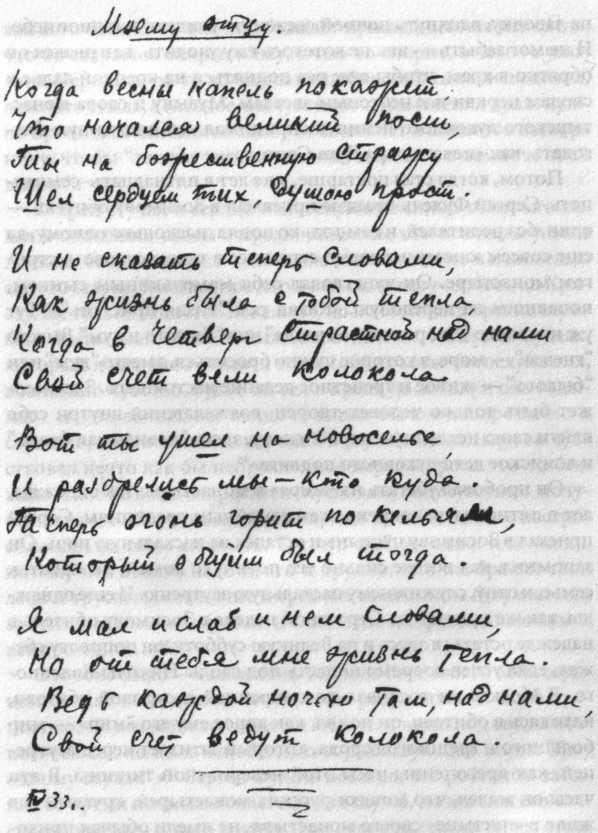 Моему отцу.
Когда весны капель покажет
Что начался великий пост,
Ты на божественную стражу
Шел сердцем тих, душою прост.
И не сказать теперь словами,
Как жизнь была с тобой тепла
Когда в Четверг Страстной над нами
Свой счет вели колокола.
Вот ты ушел на новоселье,
И разбрелись мы – кто куда.
Теперь огонь горит по кельям,
Который общим был тогда
Я мал и слаб и нем словами,
Но от тебя мне жизнь тепла.
Ведь каждой ночью там, над нами,
Свой счет ведут колокола.
IV 33..